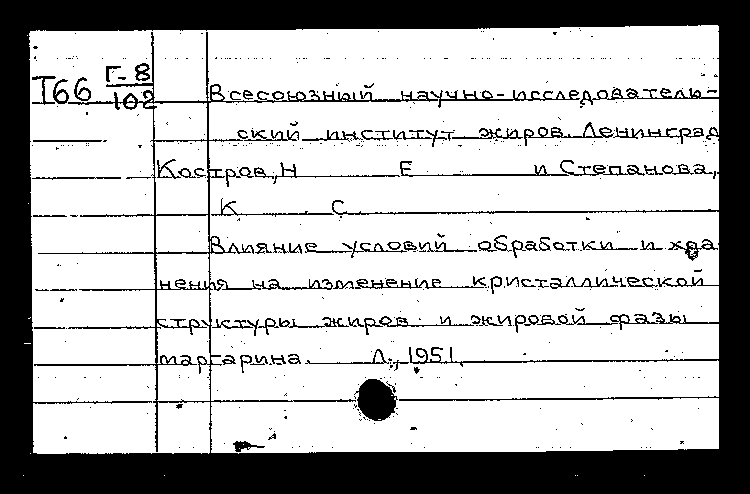 Т66 Г-8
102
Всесоюзный научно-исследователь-
ский институт жиров. Ленинград
Костров, Н Е и Степанова,
К С
Влияние условий обработки и хра
нения на изменение кристаллической
структуры жиров и жировой фазы
маргарина. Л., 1951.